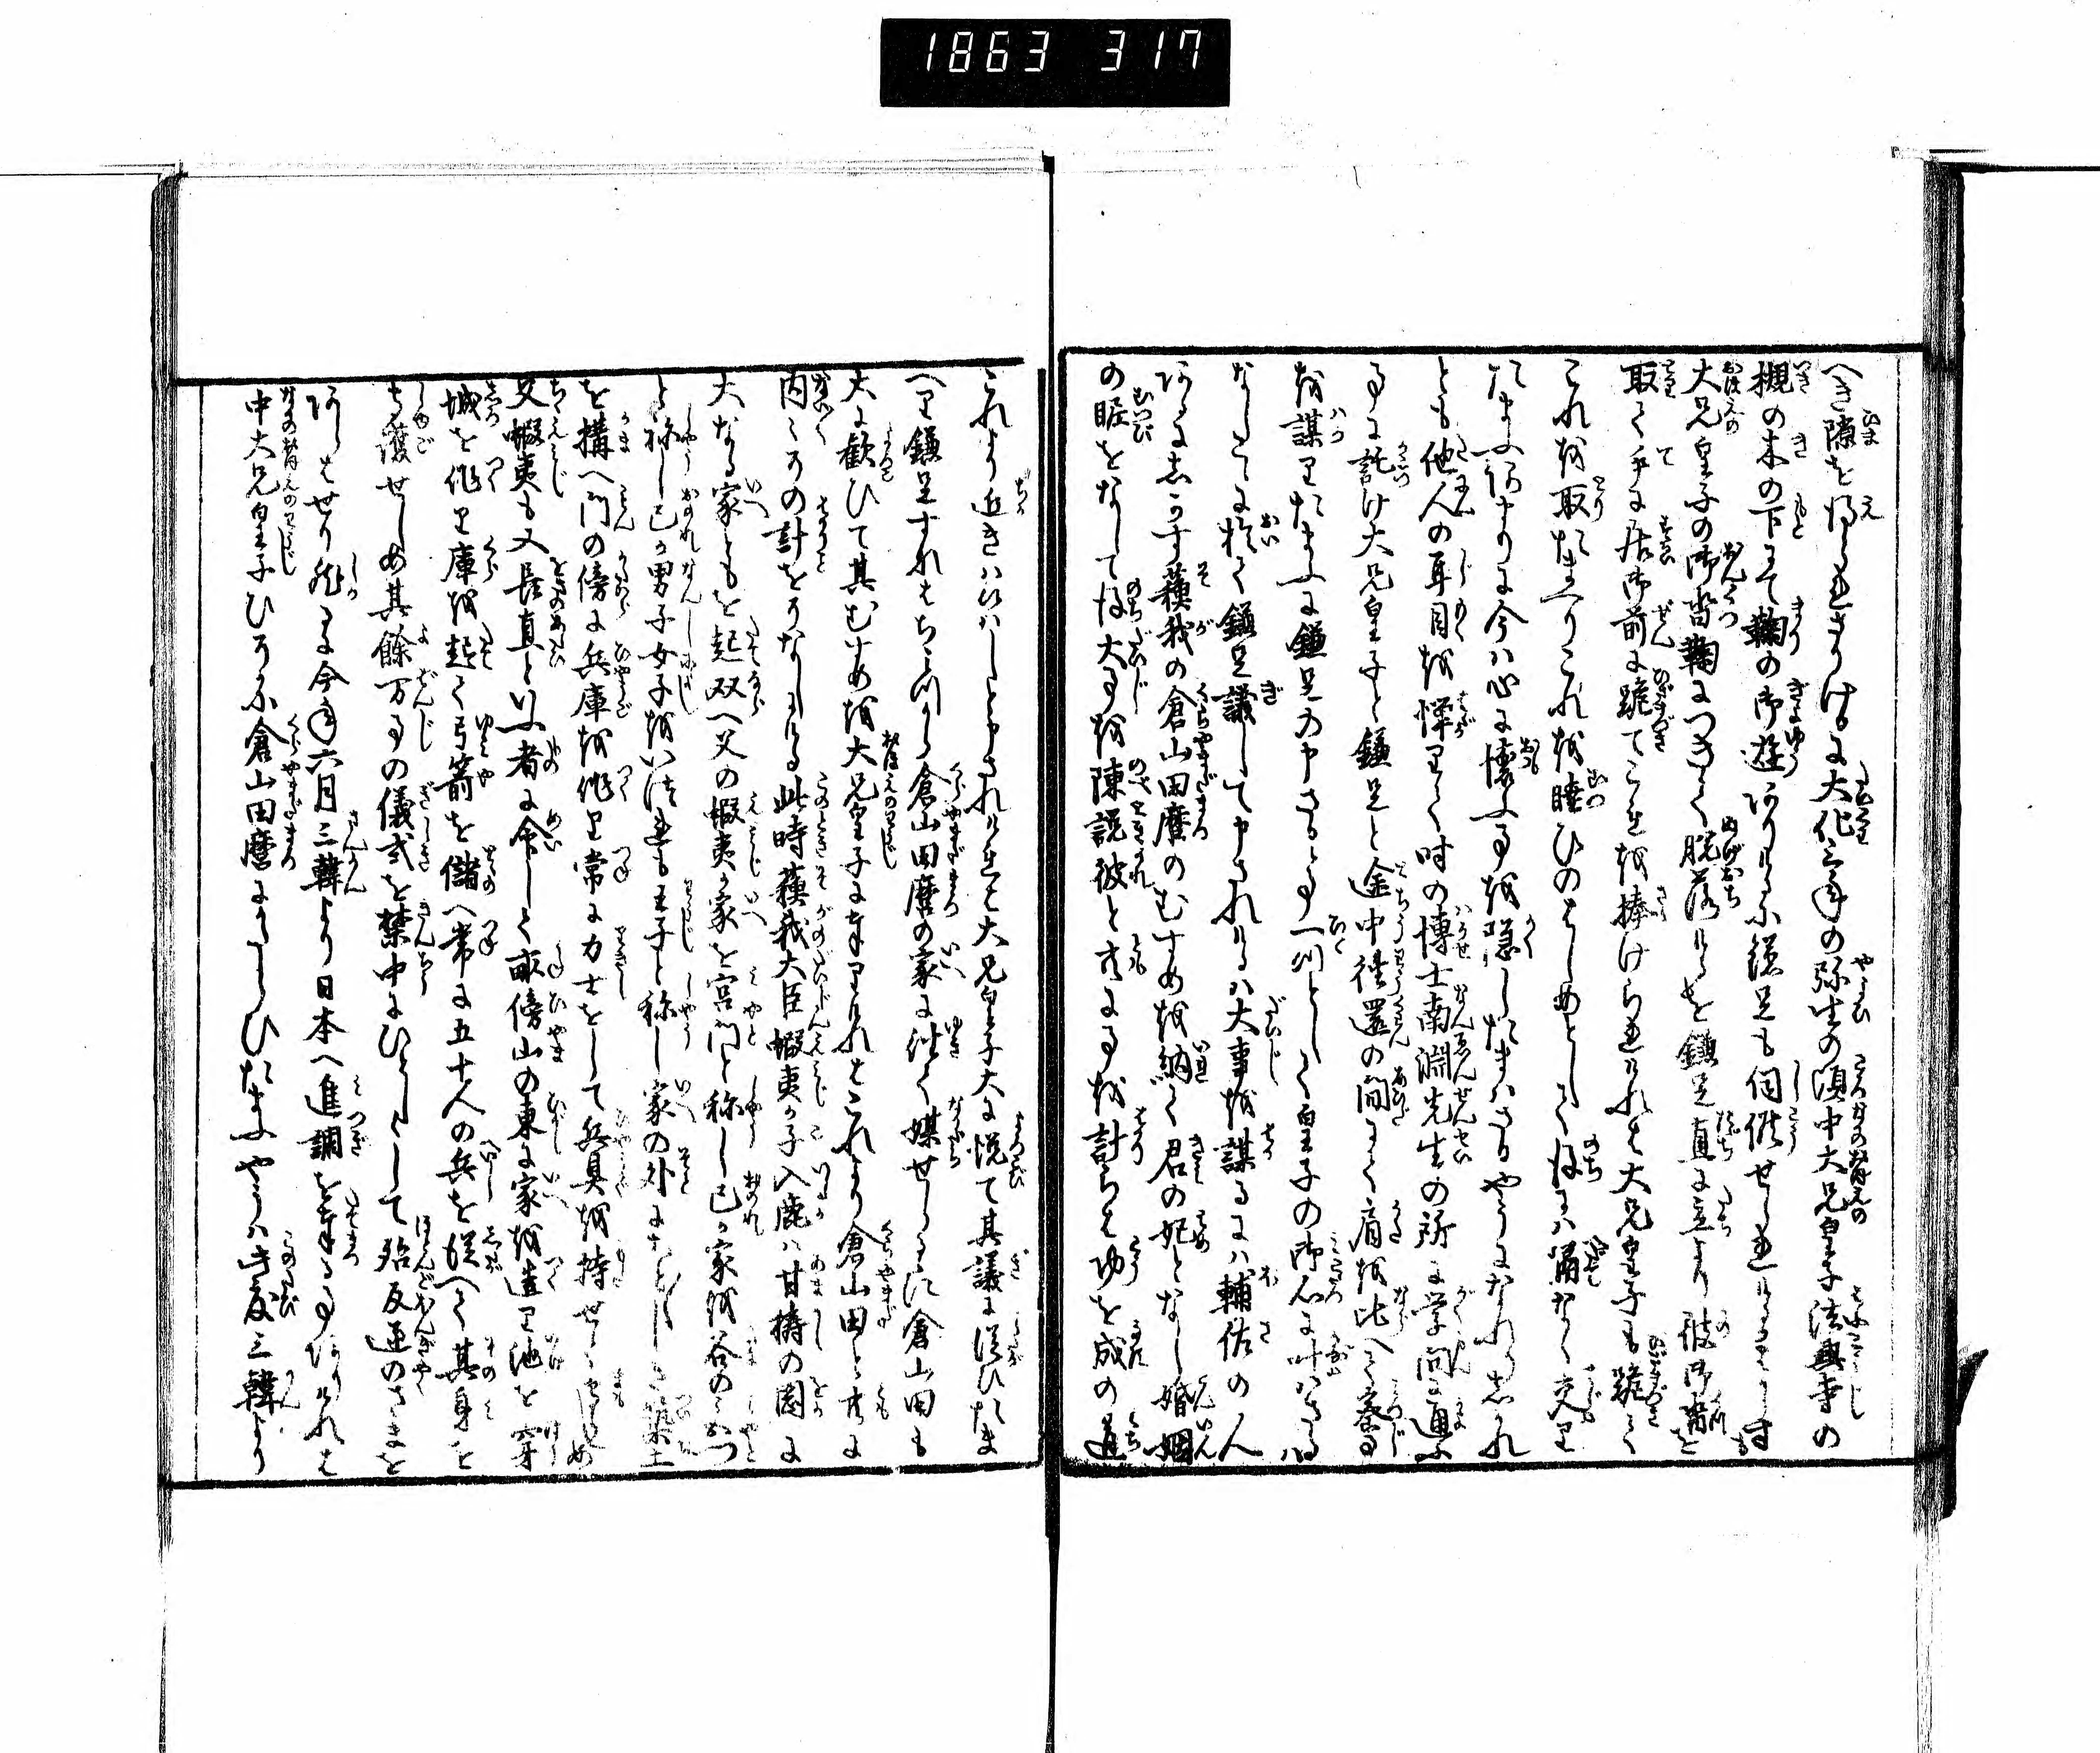 1863 317
へき隙を得られさりけるに大化三年の弥生の頃中大兄皇子法興寺の
槻の木の下にて鞠の御遊ありけるに鎌足も伺候せられけるに
大兄皇子の御沓鞠につきて脱落けるを鎌足直に立より彼御沓を
取て手に居御前に跪てこれを捧けられけれは大兄皇子も跪て
これを取たまへりこれを睦ひのはしめとして後には浦なく交り
たまふあまりに今は心に懐ふ事を隠したまはさるやうになれりしかれ
とも他人の耳目を憚りて時の博士南淵先生の所に学問に通ふ
事に託け大兄皇子と鎌足と途中往還の間にて肩を比へて密事
を謀りたまふに鎌足の申さるる事一つとして皇子の御心に叶はさるは
なしとに於て鎌足議して申されけるは大事を謀るには輔佐の人
あるにしかす蘇我の倉山田麿のむすめを納て君の妃となし婚姻
の眤をなして後大事を陳説彼と共に事を計らは功を成の道
これより近きはなしと申されけれは大兄皇子大に悦て其議に従ひたま
へり鎌足すなはち倉山田麿の家に往て媒せしに倉山田も
大に歓ひて其むすめを大兄皇子に奉りけれはこれより倉山田と共に
内々その計をそなしける此時蘇我大臣蝦夷か子入鹿は甘檮の岡に
大なる家ともを起双へ父の蝦夷か家を宮門と称し己か家を谷のみかつ
と称し己か男子女子をいつれも王子と称し家の外に築土
を構へ門の傍に兵庫を作り常に力士をして兵具を持せ
父蝦夷も又長直といふ者に命して畝傍山の東に家を造り池を穿
城を作り庫を起て弓箭を儲へ常に五十人の兵を従へて其身を
守護せしめ其餘万事の儀式を禁中にひとしくして殆反逆のさまを
あらはせり然るに今年六月三韓より日本へ進調を奉る事ありけれは
中大兄皇子ひそかに倉山田麿にかたらひたまふやうは此度三韓より